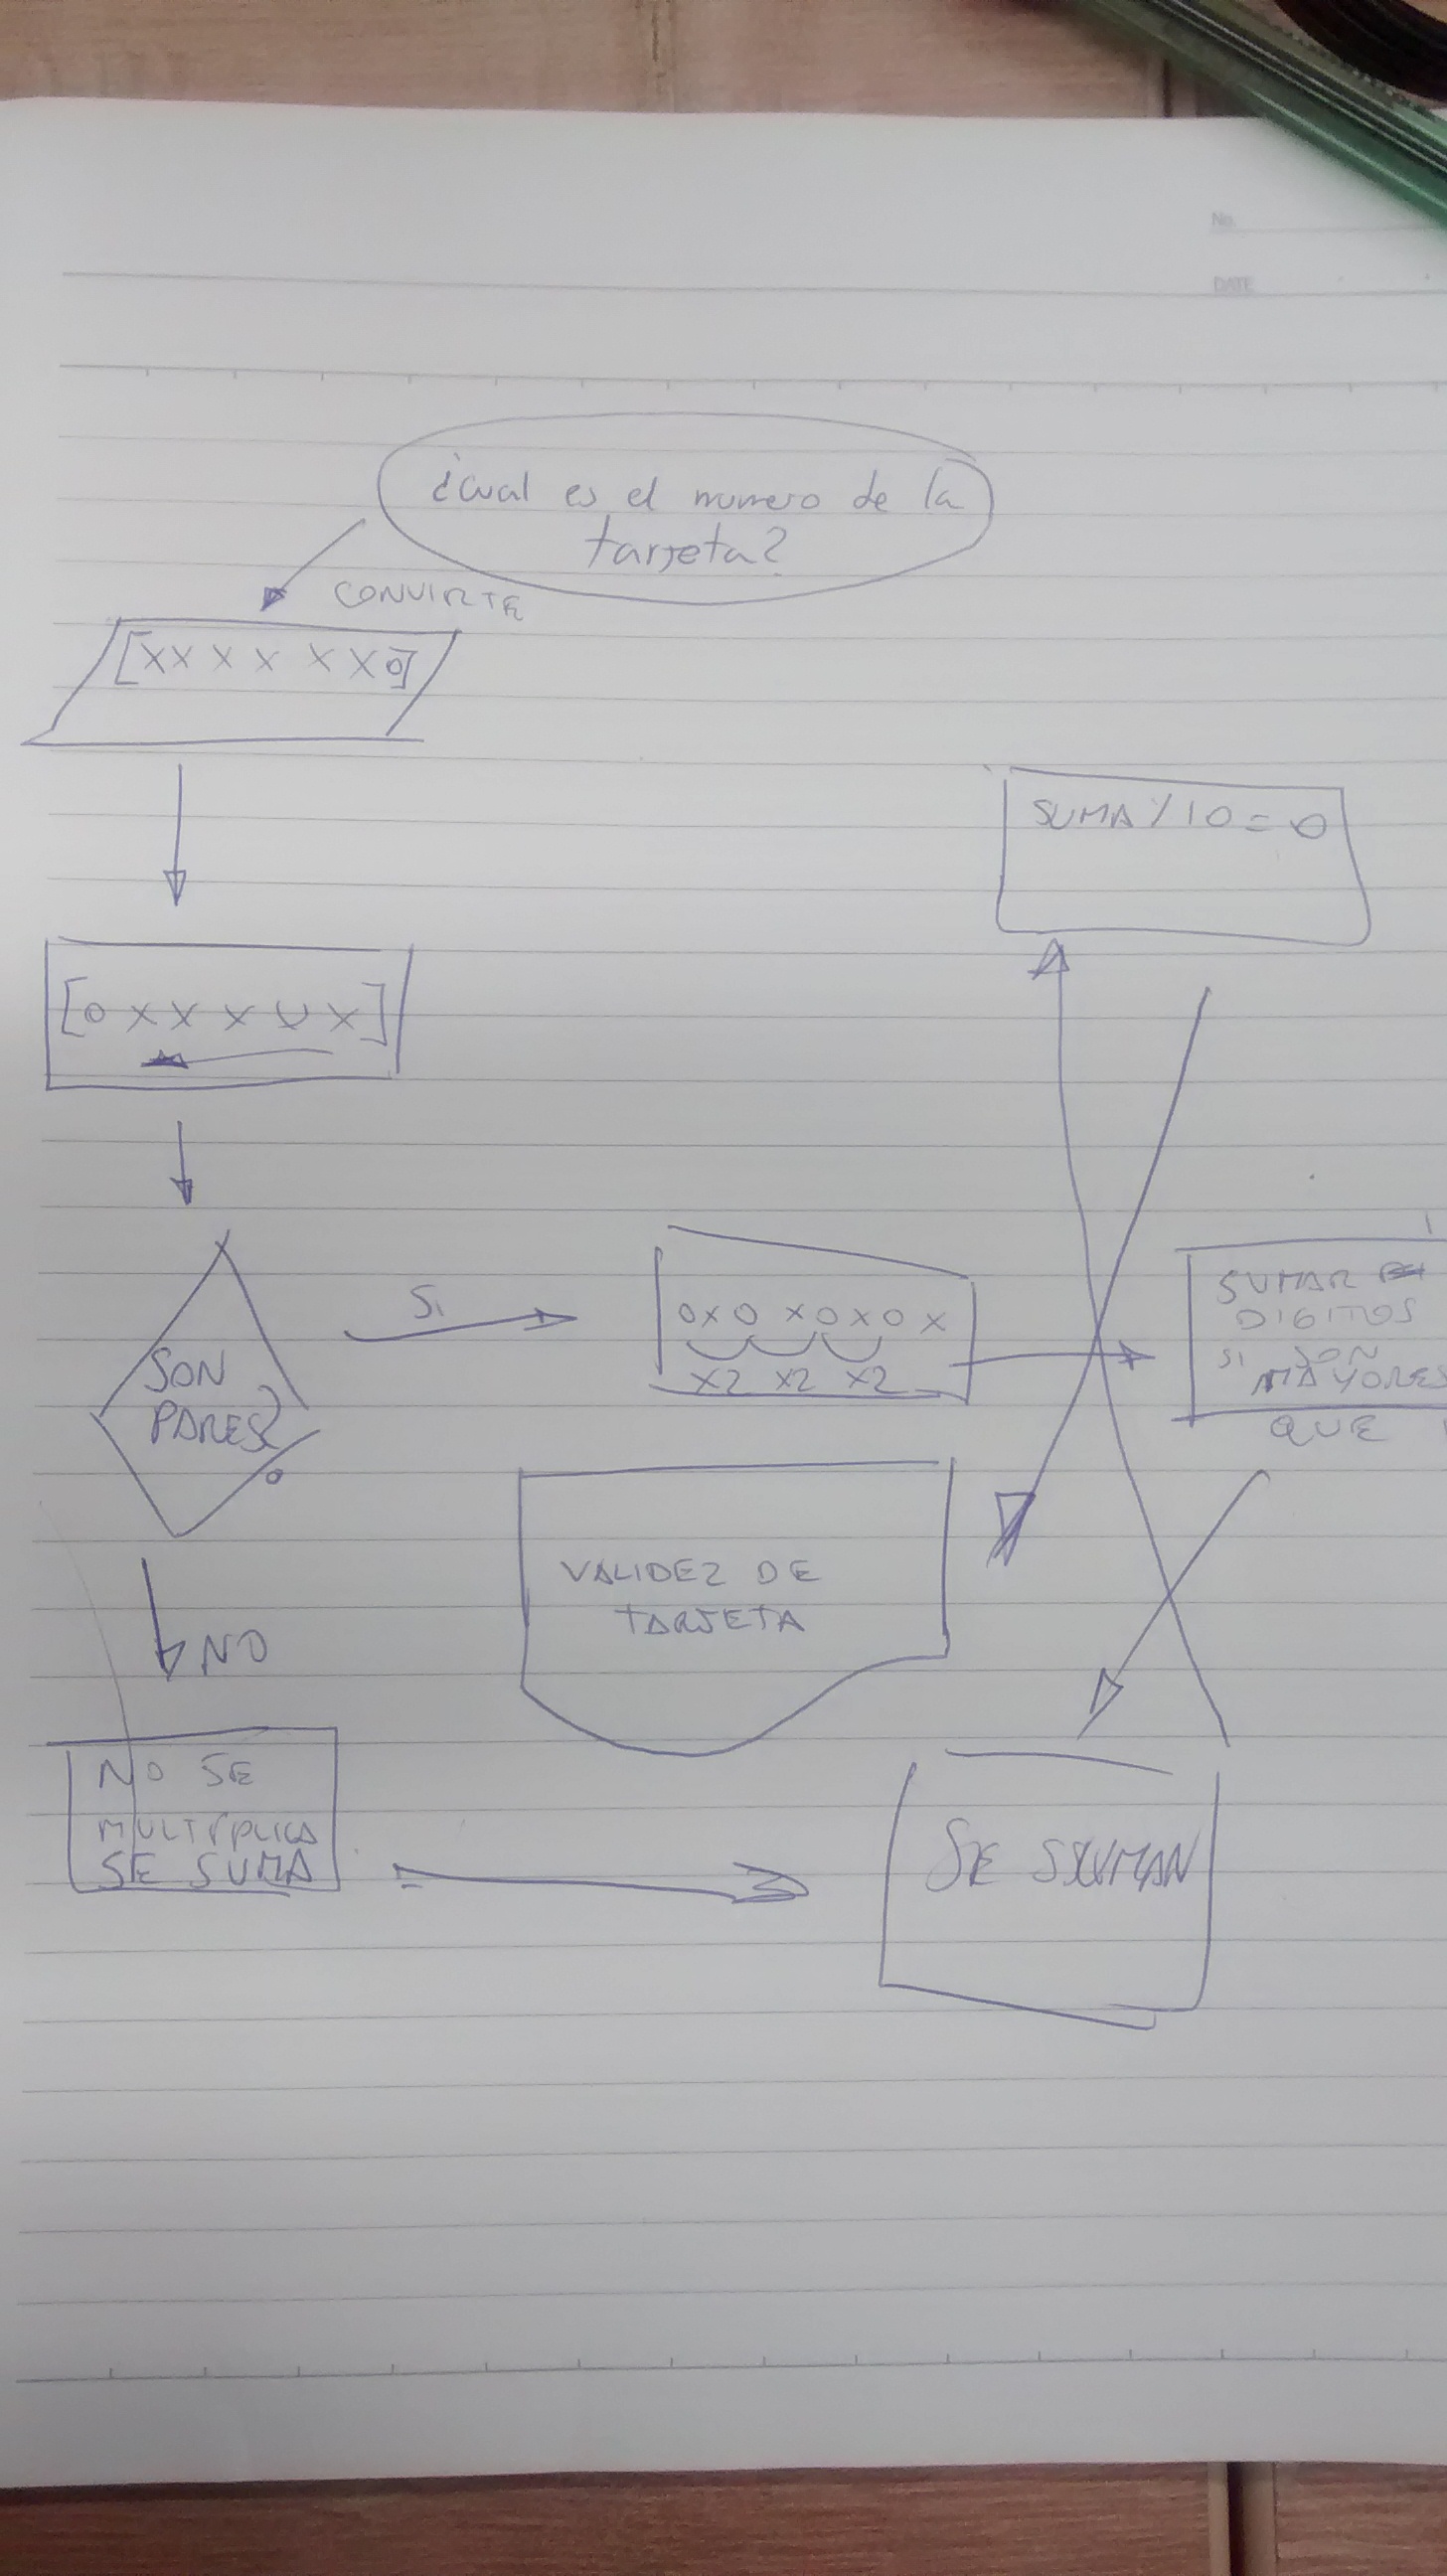 No.
DATE
¿cual es el numero de la
tarjeta?
CONVIRTE
[XX X X X X 0]
[0 X X X U X]
SUMA % 10 = 0
SON
PARES?
SI
0 X 0 X 0 X 0 X
X2 X2 X2
SUMAR
DIGITOS
SI SON
MAYORES
QUE
VALIDEZ DE
TARJETA
NO
NO SE
MULTIPLICA
SE SUMA
SE SUMAN